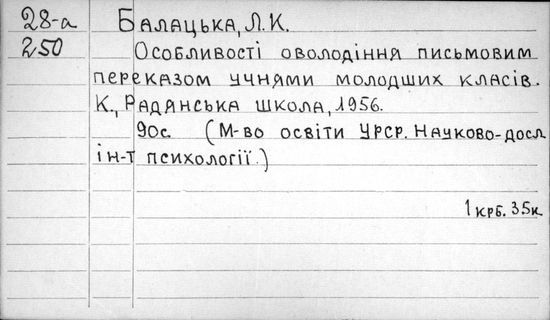 28-а Балацька, Л. К.
250 Особливості оволодіння письмовим
переказом учнями молодших класів.
К., Радянська школа, 1956.
90с. (М-во освіти УРСР. Науково-досл.
ін-т психології.)
1 крб. 35к